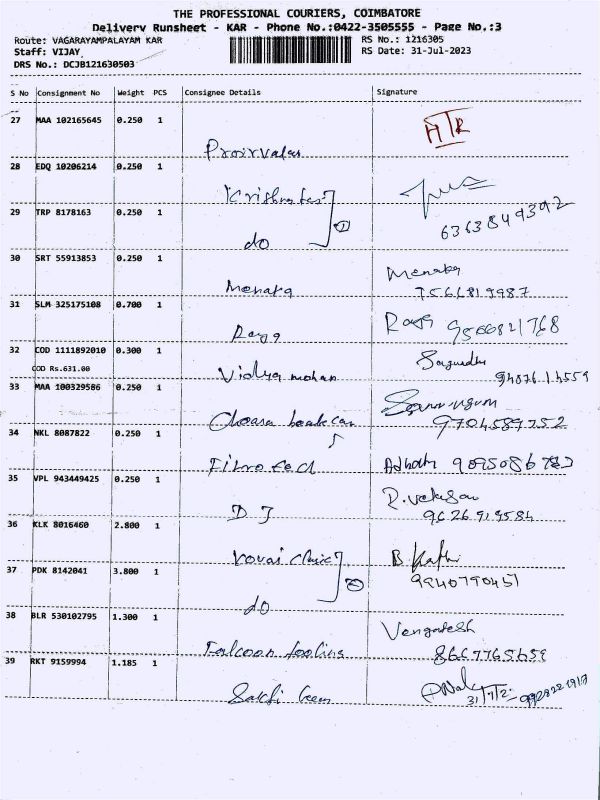 THE PROFESSIONAL COURIERS, COIMBATORE
Delivery Runsheet - KAR - Phone No.:0422-3505555 - Page No.:3
Route: VAGARAYAMPALAYAM KAR
RS No.: 1216305
Staff: VIJAY
RS Date: 31-Jul-2023
DRS No.: DCJB121630503
S No Consignment No Weight PCS Consignee Details Signature
27 MAA 102165645 0.250 1
HTR
28 EDQ 10206214 0.250 1
29 TRP 8178163 0.250 1
6363849392
do
30 SRT 55913853 0.250 1
Menaka
Menaka
7566819987
31 SLM 325175108 0.700 1
Raja
Raja 9566821768
32 COD 1111892010 0.300 1
COD Rs.631.00
Vidhya mohan
33 MAA 100329586 0.250 1
9704589752
34 NKL 8087822 0.250 1
Fibrotech
9095086782
35 VPL 943449425 0.250 1
D J
9626919584
36 KLK 8016460 2.800 1
Kovai clinic
37 PDK 8142041 3.800 1
9940790451
do
38 BLR 530102795 1.300 1
Vengatesh
Falcoon toolins
8667765659
39 RKT 9159994 1.185 1